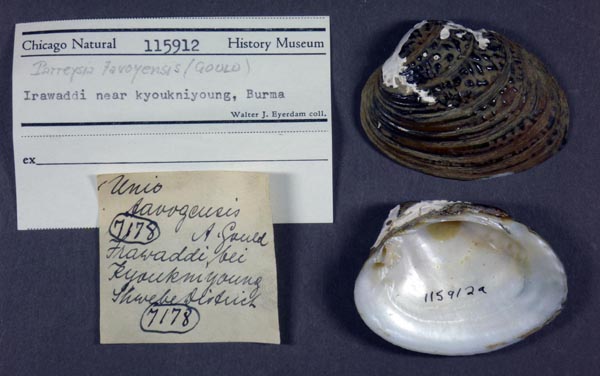 Chicago Natural 115912 History Museum
Parreysia tavoyensis (GOULD)
Irawaddi near kyoukniyoung, Burma
Walter J. Eyerdam coll.
ex
Unio
tavoyensis
7178 A. Gould
Irawaddi bei
Kyoukniyoung
Shwebo District
7178
115912a